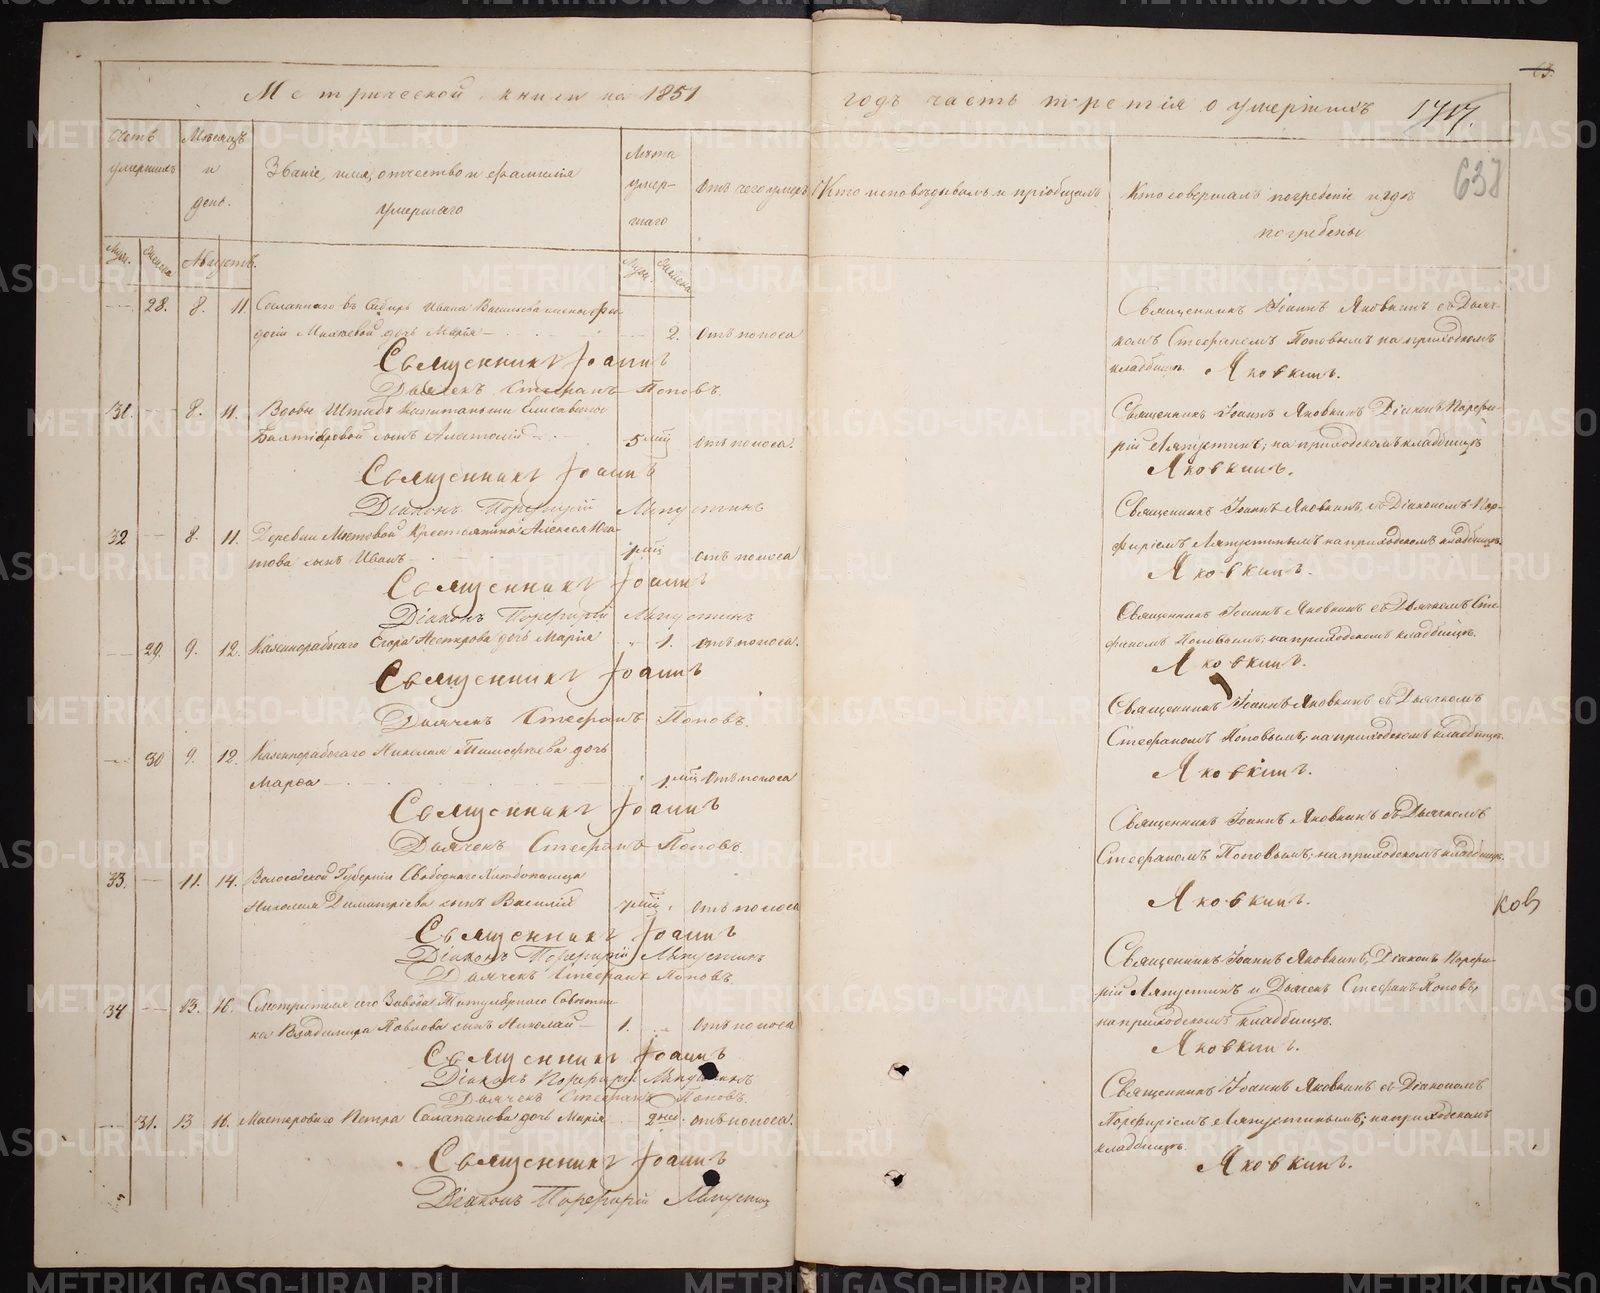 Метрической книги на 1851
годъ часть третія о умершихъ 1717.
63.
638
Счетъ умершихъ
Мѣсяцъ и день.
Званіе, имя, отчество и фамилія умершаго
Лѣта умершаго
Отъ чего умеръ
Кто исповѣдывалъ и пріобщалъ
Кто совершалъ погребеніе и гдѣ погребены
Муж. Женска Августъ. Муж. Женска
28. 8. 11. Сосланнаго въ Сибирь Ивана Васильева жены Фе-
досіи дочь Марія 2. Отъ поноса
Священникъ Іоаннъ
Дьячекъ Стефанъ Поповъ.
Священникъ Іоаннъ Яковкинъ съ Дьяч-
комъ Стефаномъ Поповымъ на приходскомъ
кладбищѣ. Яковкинъ.
31. 8. 11. Вдовы Штабъ Капитанши Елисаветы
сынъ Анатолій 5 мѣс Отъ поноса.
Священникъ Іоаннъ
Діаконъ Порфирій Ляпустинъ
Священникъ Іоаннъ Яковкинъ Діаконъ Порфи-
рій Ляпустинъ; на приходскомъ кладбищѣ
Яковкинъ.
32 8. 11. Деревни Крестьянина Алексея
сынъ Иванъ мѣс Отъ поноса
Священникъ Іоаннъ
Діаконъ Порфирій Ляпустинъ
Священникъ Іоаннъ Яковкинъ, съ Діакономъ Пор-
фиріемъ Ляпустинымъ на приходскомъ кладбищѣ.
Яковкинъ.
29. 9. 12. Казеннорабочаго Егора Нестерова дочь Марія 1. Отъ поноса.
Священникъ Іоаннъ
Дьячекъ Стефанъ Поповъ.
Священникъ Іоаннъ Яковкинъ съ Дьячкомъ Сте-
фаномъ Поповымъ, на приходскомъ кладбищѣ.
Яковкинъ.
30 9. 12. Казеннорабочаго Николая Тимофѣева дочь
Марфа 1 мѣс Отъ поноса
Священникъ Іоаннъ
Дьячекъ Стефанъ Поповъ.
Священникъ Іоаннъ Яковкинъ съ Дьячкомъ
Стефаномъ Поповымъ, на приходскомъ кладбищѣ.
Яковкинъ.
33. 11. 14. Вологодской Губерніи Свободнаго Хлѣбопашца
Николая Димитріева сынъ Василій 7 мѣс Отъ поноса
Священникъ Іоаннъ
Діаконъ Порфирій Ляпустинъ
Дьячекъ Стефанъ Поповъ.
Священникъ Іоаннъ Яковкинъ съ Дьячкомъ
Стефаномъ Поповымъ; на приходскомъ кладбищѣ.
Яковкинъ.
ков
34 13. 16. Смотрителя сего Завода Титулярнаго Совѣтни-
ка Владимира Павлова сынъ Николай 1. Отъ поноса
Священникъ Іоаннъ
Діаконъ Порфирій Ляпустинъ
Дьячекъ Стефанъ Поповъ.
Священникъ Іоаннъ Яковкинъ, Діаконъ Порфи-
рій Ляпустинъ и Дьячекъ Стефанъ Поповъ,
на приходскомъ кладбищѣ.
Яковкинъ.
31. 13 16. Мастероваго Петра дочь Марія 2 нед. Отъ поноса.
Священникъ Іоаннъ
Діаконъ Порфирій Ляпустин
Священникъ Іоаннъ Яковкинъ съ Діакономъ
Порфиріемъ Ляпустинымъ; на приходскомъ
кладбищѣ.
Яковкинъ.
METRIKI.GASO-URAL.RU